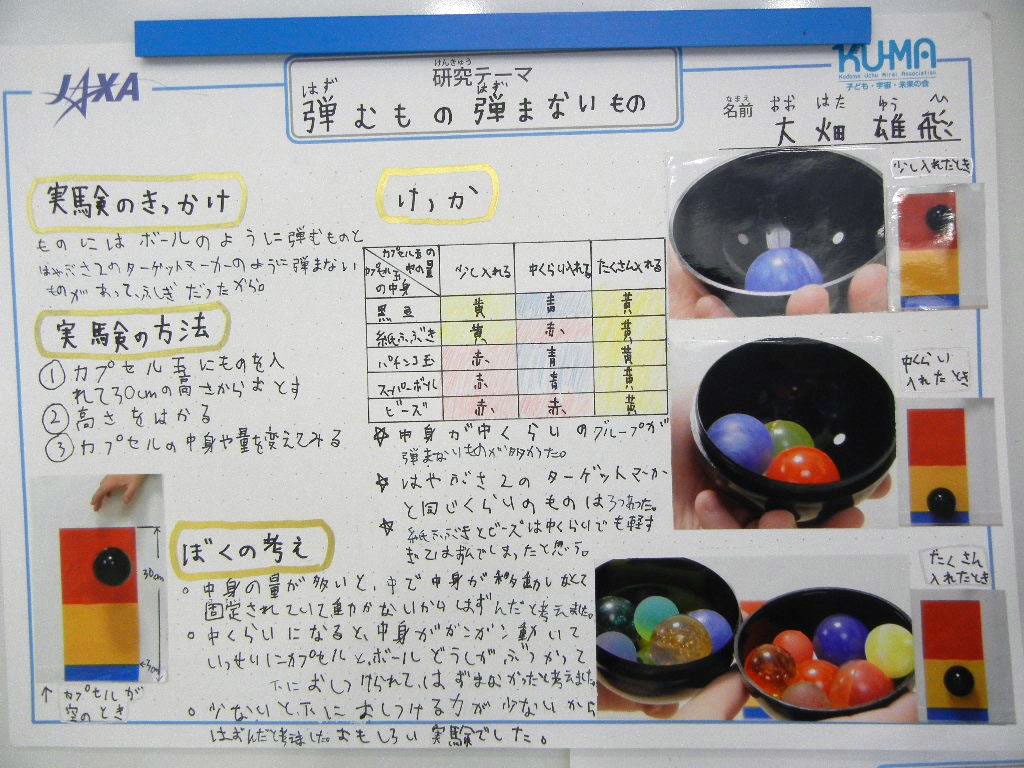 JAXA
けんきゅう
研究テーマ
はず はず
弾むもの弾まないもの
KU-MA
Kodomo Uchu Mirai Association
子ども・宇宙・未来の会
なまえ おお はた ゆう ひ
名前 大畑 雄飛
実験のきっかけ
ものにはボールのように弾むものと
はやぶさ2のターゲットマーカーのように弾まない
ものがあって、ふしぎだったから。
実験の方法
① カプセル玉にものを入
れて30cmの高さからおとす
② 高さをはかる
③ カプセルの中身や量を変えてみる
30cm
↑カプセルが
空のとき
けっか
カプセル玉の中の量 カプセル玉の中身 少し入れる 中くらい入れる たくさん入れる
黒豆 黄 青 黄
紙ふぶき 黄 赤 黄
パチンコ玉 赤 青 黄
スーパーボール 赤 青 黄
ビーズ 赤 赤 黄
☆ 中身が中くらいのグループが
弾まないものが多かった。
☆ はやぶさ2のターゲットマーカー
と同じくらいのものは3つあった。
☆ 紙ふぶきとビーズは中くらいでも軽す
ぎてはずんでしまったと思う。
ぼくの考え
○ 中身の量が多いと、中で中身が移動しなくて
固定されていて動かないからはずんだと考えました。
○ 中くらいになると、中身がガンガン動いて
いっせいにカプセルと、ボールどうしがぶつかって
下におしつけられて、はずまなかったと考えました。
○ 少ないと下におしつける力が少ないから
はずんだと考えました。おもしろい実験でした。
少し入れたとき
中くらい
入れたとき
たくさん
入れたとき